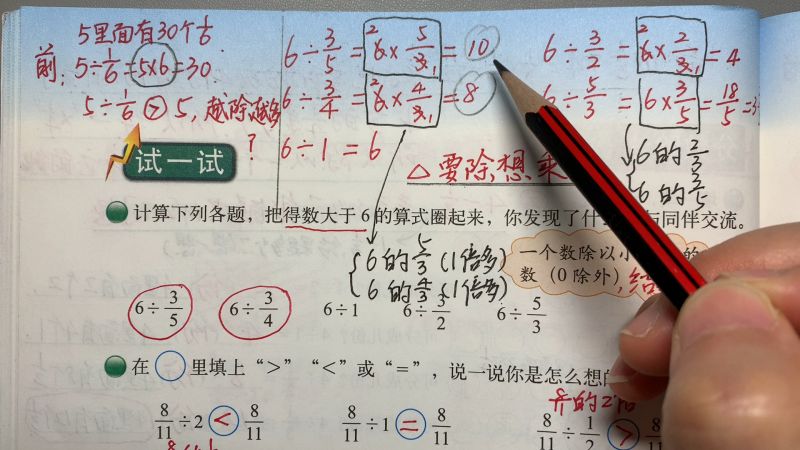 5里面有30个1/6
前: 5÷1/6=5×6=30
5÷1/6>5, 越除越多?
6÷3/5=6×5/3=10
6÷3/4=6×4/3=8
6÷1=6
6÷3/2=6×2/3=4
6÷5/3=6×3/5=18/5=3
△要除想乘
6的2/3
6的3/5
试一试
计算下列各题，把得数大于6的算式圈起来，你发现了什 与同伴交流。
6的5/3(1倍多)
6的4/3(1倍多)
一个数除以小 的
数（0除外）,结
6÷3/5 6÷3/4 6÷1 6÷3/2 6÷5/3
在○里填上“>”“<”或“=”，说一说你是怎么想的
8/11÷2<8/11 8/11÷1=8/11 8/11÷1/2>8/11
的2倍